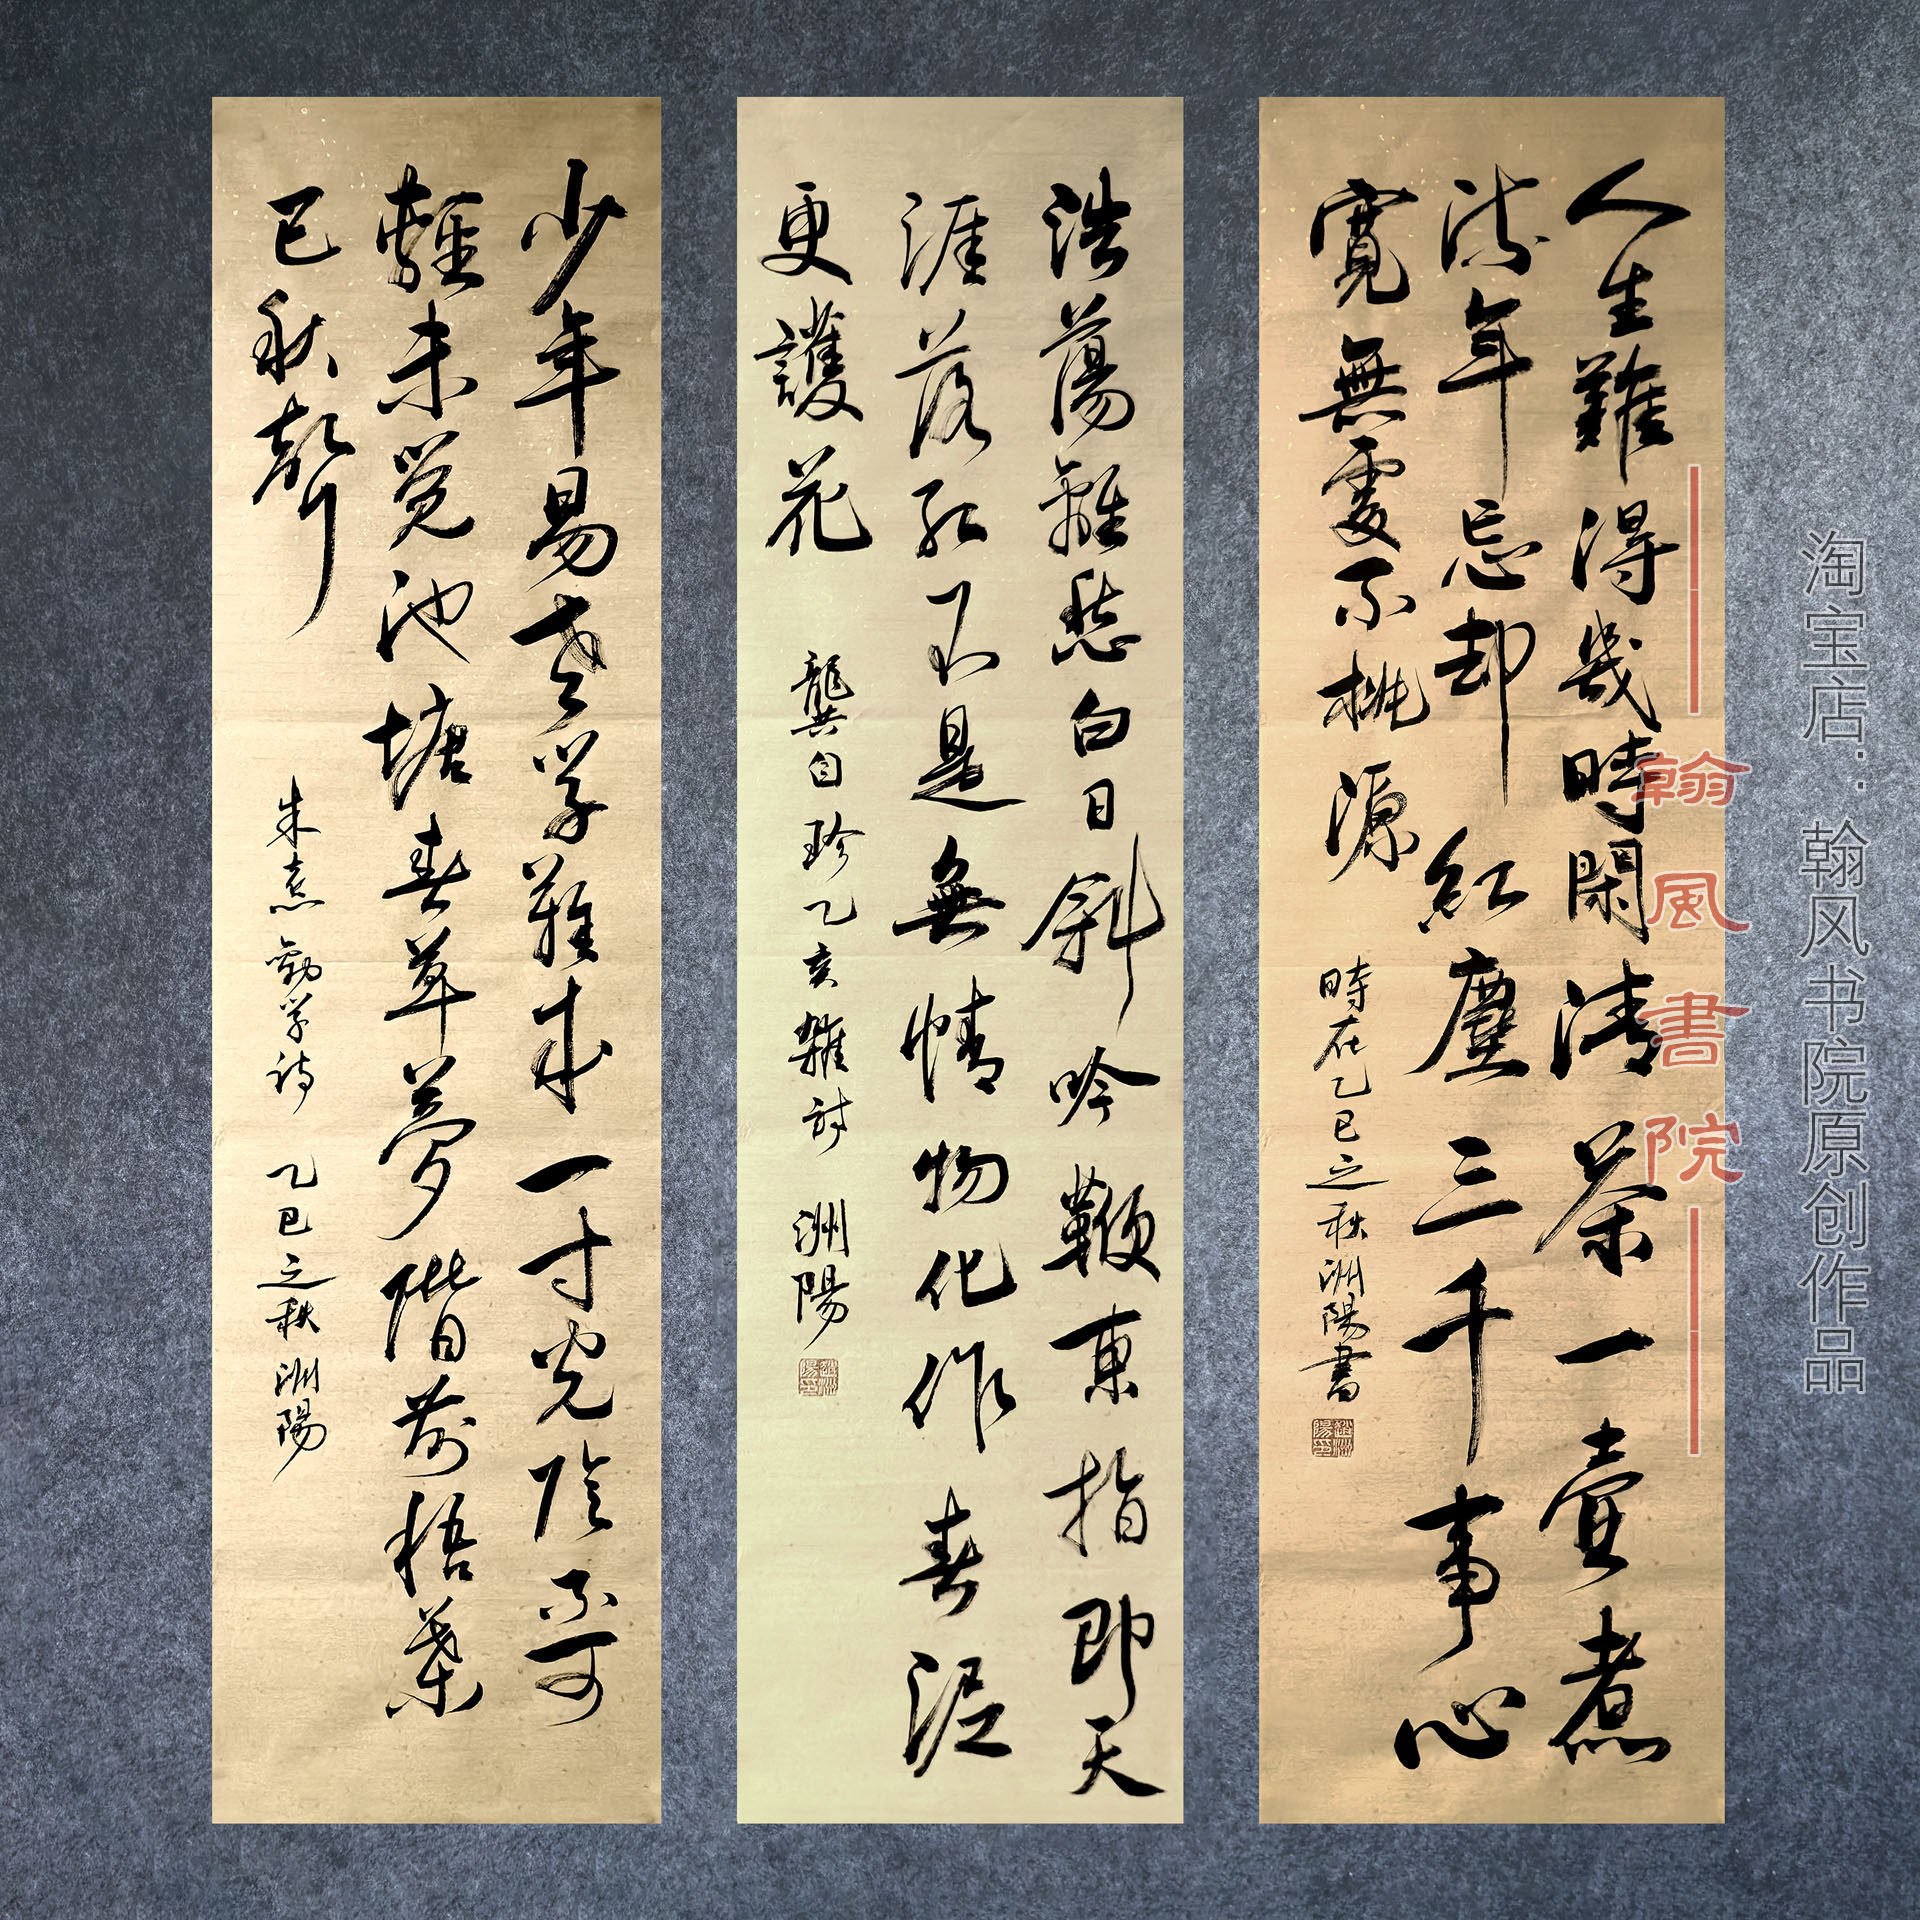 淘宝店：翰风书院原创作品
翰風書院
人生難得幾時閑清茶一壺煮
流年忘却紅塵三千事心
寬無處不桃源
時在乙巳之秋洲陽書
浩蕩離愁白日斜吟鞭東指即天
涯落紅不是無情物化作春泥
更護花
龔自珍乙亥雜詩 洲陽
少年易老學難成一寸光陰不可
輕未覺池塘春草夢階前梧葉
已秋聲
朱熹勸學詩 乙巳之秋洲陽